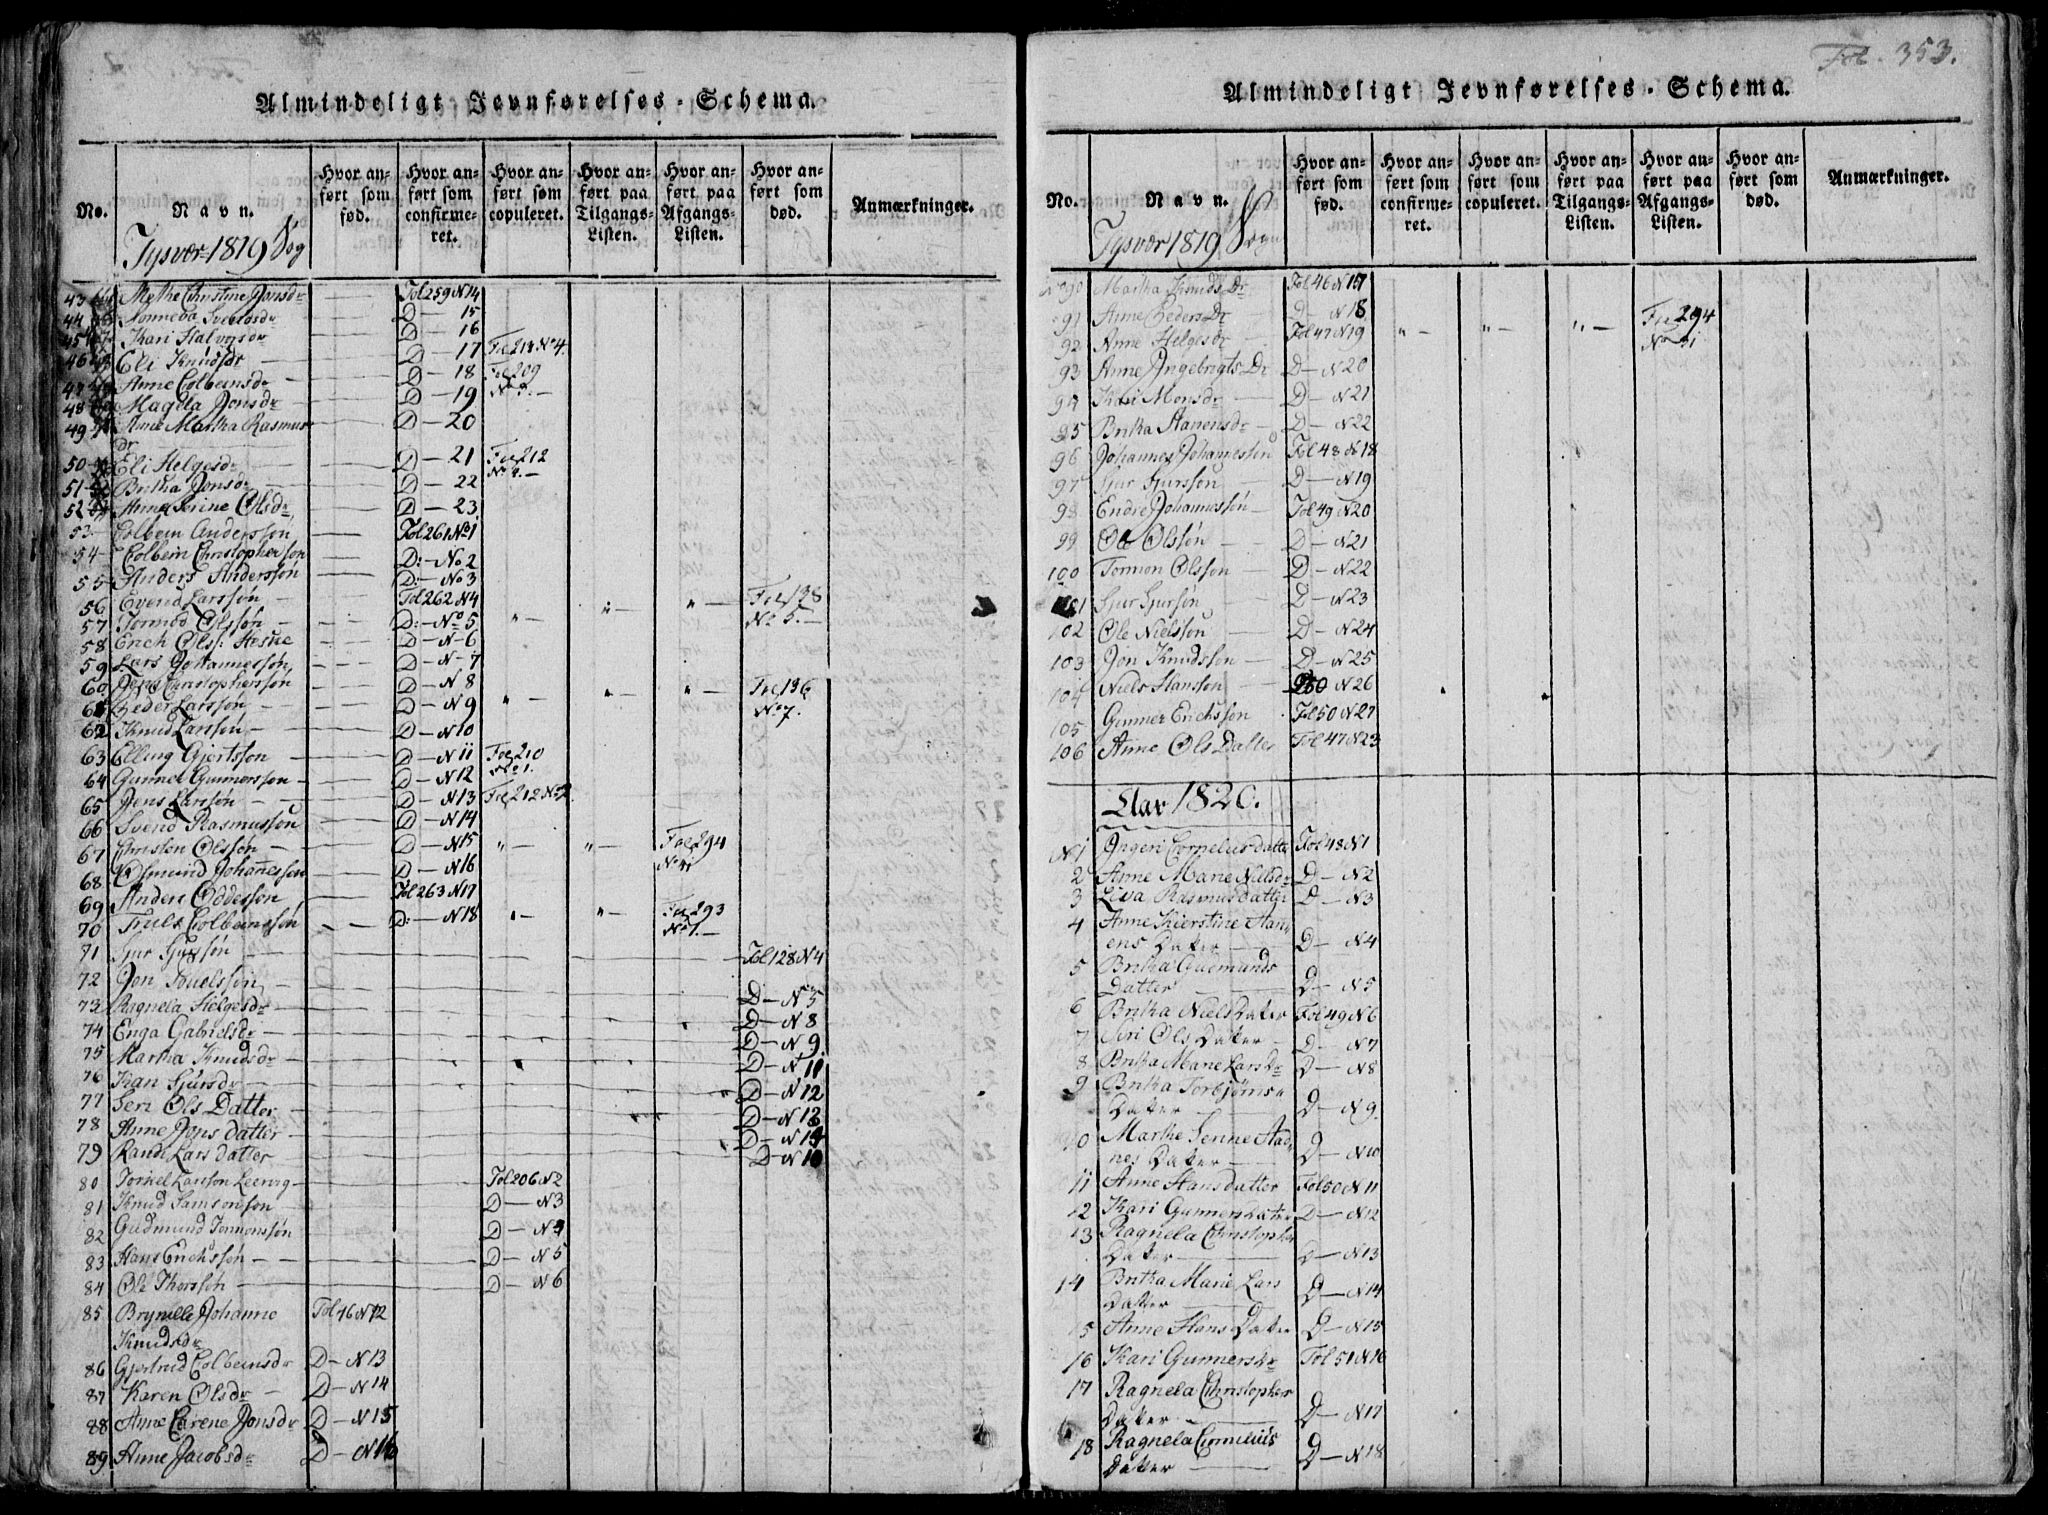 Almindeligt Jevnførelses-Schema.
No. Navn. Hvor anført som fød. Hvor anført som confirmeret. Hvor anført som copuleret. Hvor anført paa Tilgangs-Listen. Hvor anført paa Afgangs-Listen. Hvor anført som død. Anmærkninger.
Tysvær 1819 Sog
43 Methe Christine Jonsdr Fol 259 N 14
44 Sverrisdr D — 15
45 Kari Halvorsdr D — 16
46 Eli Knudsdr D — 17 Fol 213 No 4.
47 Anne Colbeinsdr D — 18 Fol 209
48 Magela Jonsdr D — 19
49 Anne Martha Rasmus D — 20
dr
50 Eli Helgesdr D — 21 Fol 212
51 Britha Jonsdr D — 22
52 Anne Serine Olsdr D — 23
53 Colbein Anderssøn Fol 261 No 1
54 Colbein Christophersøn D: — No 2
55 Anders Anderssøn D: — No 3
56 Evend Larssøn Fol 262 N 4 Fol 138
57 Tormod Olssøn D: — No 5 " — " — " — No 5. —
58 Erich Olss: D — N — 6
59 Lars Johannessøn D — N — 7
60 Jens Christophersøn D — N 8 Fol 136
61 Peder Larssøn D — N 9 " " — " — No 7.
62 Knud Larssøn D — N 10
63 Elling Gjertsøn D — N 11 Fol 210
64 Gunner Gunnerssøn D — N 12 No 1.
65 Jens Larssøn D — N 13 Fol 212 No 2
66 Svend Rasmussøn D — N 14
67 Christen Olssøn D — N 15 " — " — Fol 294
68 Osmund Johannessøn D — N 16
69 Anders Oddessøn Fol 263 N 17
70 Truls Colbeinssøn D: — N 18 " — " — Fol 293
No 1. —
71 Sjur Sjurssøn Fol 128 N 4
72 Jon D — N 5
73 Ragnela Helgesdr D — N 8
74 Enga Gabrielsdr D — N 9
75 Martha Knudsdr D — N 11
76 Kari Sjursdr D — N 12
77 Seri Ols Datter D — N 13
78 Anne Jons datter D — N 14
79 Randi Lars datter D — N 10
80 Torkel Larssøn Leervig Fol 206 N 2
81 Knud Samsonsøn D — N 3
82 Gudmund Tormonssøn D — N 4
83 Hans Erichssøn D — N 5
84 Ole Thorssøn D — N 6
85 Brynille Johanne Fol 46 N 12
Knudsdr
86 Gjertrud Colbeinsdr D — N 13
87 Karen Olsdr D — N 14
88 Anne Carene Jonsdr D — N 15
89 Anne Jacobsdr D — N 16
Fol. 353.
Almindeligt Jevnførelses-Schema.
No. Navn. Hvor anført som fød. Hvor anført som confirmeret. Hvor anført som copuleret. Hvor anført paa Tilgangs-Listen. Hvor anført paa Afgangs-Listen. Hvor anført som død. Anmærkninger.
Tysvær 1819 Sogn
No 90 Martha Knuds Dr Fol 46 N 17
91 Anne Peders Dr D — N 18 Fol 294
92 Anne Helgesdr Fol 47 N 19 " — " — " —
93 Anne Ingebrigts Dr D — N 20
94 Kari Monsdr D — N 21
95 Britha Hanensdr D — N 22
96 Johannes Johannessøn Fol 48 N 18
97 Sjur Sjurssøn D — N 19
98 Endre Johannessøn Fol 49 N 20
99 Ole Olssøn D — N 21
100 Tormon Olssøn D — N 22
101 Sjur Sjursøn D — N 23
102 Ole Nielssøn D — N 24
103 Jon Knudssøn D — N 25
104 Niels Hanssøn N 26
105 Gunner Erichssøn Fol 50 N 27
106 Anne Ols Datter Fol 47 N 23
Aar 1820.
N 1 Ingeri Cornelius datter Fol 48 N 1
2 Anne Marie Nielsdr D — N 2
3 Liva Rasmusdatter D — N 3
4 Anne Kierstine Han
ens Datter D — N 4
5 Britha Gudmunds
Datter D — N 5
6 Britha Niels Datter Fol 49 N 6
7 Siri Ols Datter D — N 7
8 Britha Marie Lars Dr D — N 8
9 Britha Torbjørns
Datter D — N 9
10 Marthe Serine Aad
nes Datter D — N 10
11 Anne Hans datter Fol 50 N 11
12 Kari Gunners Datter D — N 12
13 Ragnela Christopher
Datter D — N 13
14 Britha Marie Lars
Datter D — N 14
15 Anne Hans Datter D — N 15
16 Kari Gunnersdr Fol 51 N 16
17 Ragnela Christopher
Datter D — N 17
18 Ragnela Cornelius
Datter D — N 18